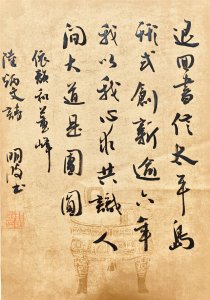 退回書信太平島
雅式創新逾六年
我以我心求共識人
間大道是圓圓
依韻和姜峰
陸炳文詩 明波書